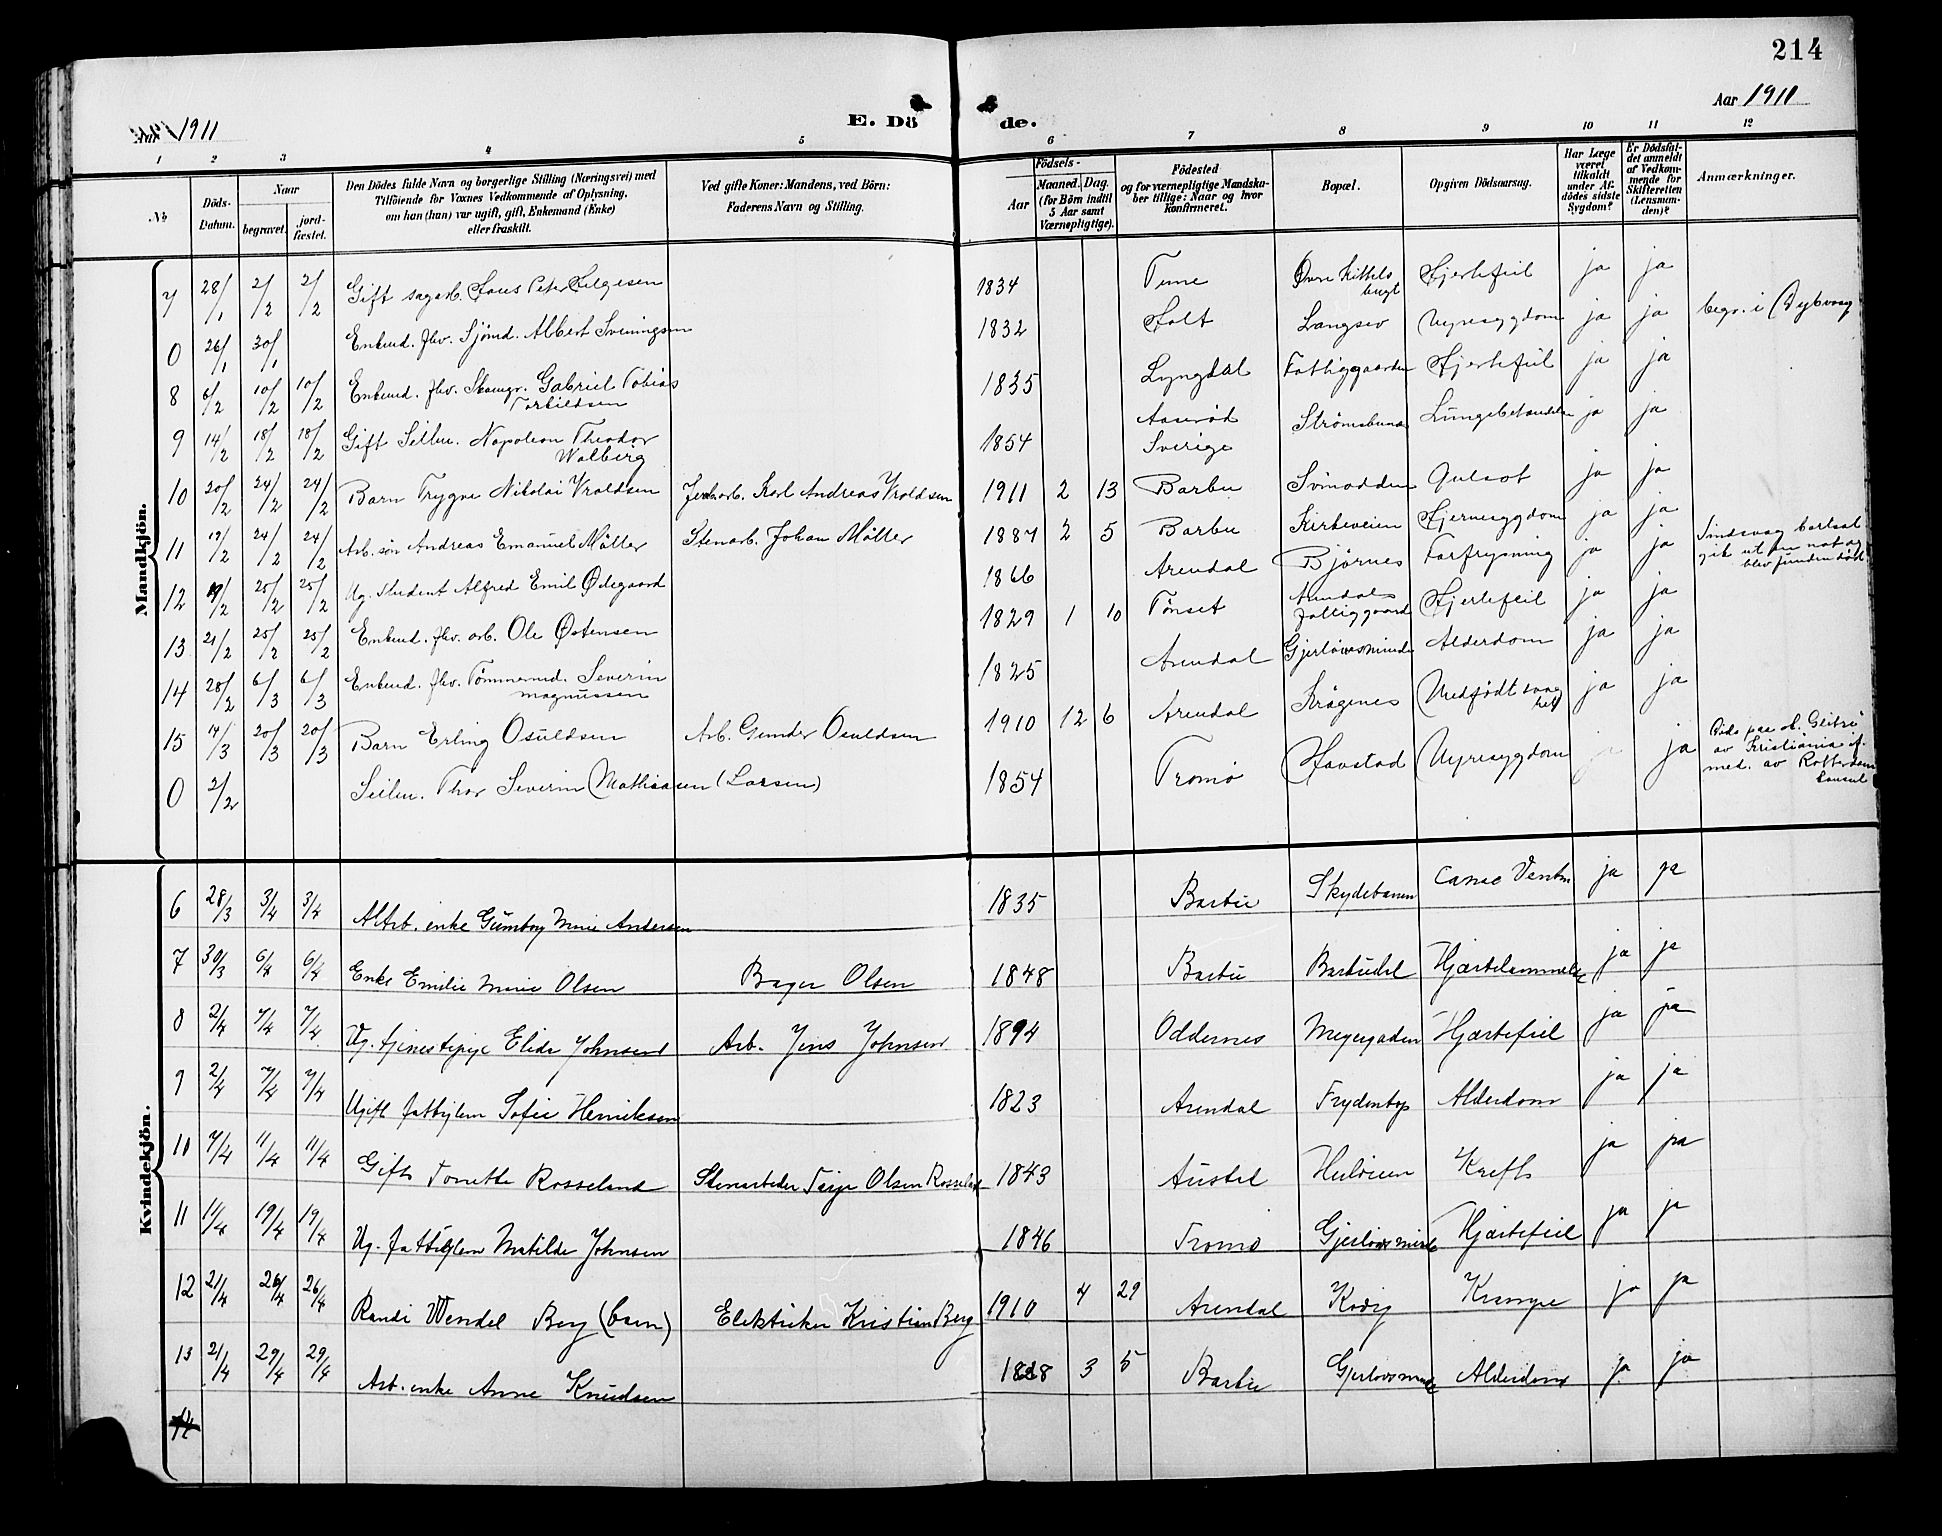 214
Aar 1911
Aar 1911
E. Dö de.
1 2 3 4 5 6 7 8 9 10 11 12
No
Döds-Datum.
Naar
begravet.
jord-fæstet.
Den Dödes fulde Navn og borgerlige Stilling (Næringsvei) med
Tilföiende for Voxnes Vedkommende af Oplysning,
om han (hun) var ugift, gift, Enkemand (Enke)
eller fraskilt.
Ved gifte Koner: Mandens, ved Börn:
Faderens Navn og Stilling.
Födsels-
Aar
Maaned. Dag.
(for Börn indtil
5 Aar samt
Værnepligtige).
Födested
og for værnepligtige Mandska-
ber tillige: Naar og hvor
konfirmeret.
Bopæl.
Opgiven Dödsaarsag.
Har Læge
været
tilkaldt
under Af-
dödes sidste
Sygdom?
Er Dödsfal-
det anmeldt
af Vedkom-
mende for
Skifteretten
(Lensman-
den)?
Anmærkninger.
Mandkjön.
7 28/1 2/2 2/2 Gift sagarb. Hans Peter Helgesen 1834 Tune Øvre Kittelsbugt Hjertefeil ja ja
0 26/1 30/1 Enkmd. fhv. Sjömd. Albert Sveningsen 1832 Holt Langsev Nyresygdom ja ja begr. i Dybvaag
8 6/2 10/2 10/2 Enkmd. fhv. Skomgr. Gabriel Tobias Torkildsen 1835 Lyngdal Fattiggaarden Hjertefeil ja ja
9 14/2 18/2 18/2 Gift Seilm. Napoleon Theodor Walberg 1854 Sverige Strömsbuna Lungebetændelse ja ja
10 20/2 24/2 24/2 Barn Trygve Nikolai Vroldsen Jernarb. Karl Andreas Vroldsen 1911 2 13 Barbu Svinodden Gulsot ja ja
11 19/2 24/2 24/2 Arb. søn Andreas Emanuel Møller Stenarb. Johan Møller 1887 2 5 Barbu Kirkeveien Hjernesygdom ja ja
12 19/2 25/2 25/2 Ug. Student Alfred Emil Ødegaard 1866 Arendal Bjørnes Forfrysning ja ja Sindssvag bortsat gik ut en nat og blev funden død
13 21/2 25/2 25/2 Enkmd. fhv. arb. Ole Østensen 1829 1 10 Tønset Arendals fattiggaard Hjertefeil ja ja
14 28/2 6/3 6/3 Enkmd. fhv. Tömmermd. Severin Magnussen 1825 Arendal Gjerløvsminde Alderdom ja ja
15 14/3 20/3 20/3 Barn Erling Osuldsen Arb. Gunder Osuldsen 1910 12 6 Arendal Krøgenes Medfødt svaghet ja ja
0 2/2 Seilm. Thor Severin Mathiasen (Larsen) 1854 Tromø Havstad Nyresygdom ja av Kristiania med. av Rotterdam konsul
Kvindekjön.
6 28/3 3/4 3/4 Arb. enke Gumborg Marie Andersen 1835 Barbu Skydebanen Cancer Ventr. ja ja
7 30/3 6/4 6/4 Enke Emilie Marie Olsen Bager Olsen 1848 Barbu Barbudal Hjertelammelse ja ja
8 2/4 7/4 7/4 Ug. tjenestepige Elida Johnsen Arb. Jens Johnsen 1894 Oddernes Meyergaden Hjærtefeil ja ja
9 2/4 7/4 7/4 Ugift fattiglem Sofie Henriksen 1823 Arendal Frydentop Alderdom ja ja
10 7/4 11/4 11/4 Gift Tonette Rosseland Stenarbeider Tarje Olsen Rosseland 1843 Austad Heiloien Kræft ja ja
11 11/4 19/4 19/4 Ug. fattiglem Matilde Johnsen 1846 Tromø Gjerløvsminde Hjærtefeil ja ja
12 21/4 26/4 26/4 Randi Wendel Berg (barn) Elektriker Kristian Berg 1910 4 29 Arendal Kolvig Krampe ja ja
13 21/4 29/4 29/4 Arb. enke Anne Knudsen 1828 3 5 Barbu Gjerløvsminde Alderdom ja ja
14